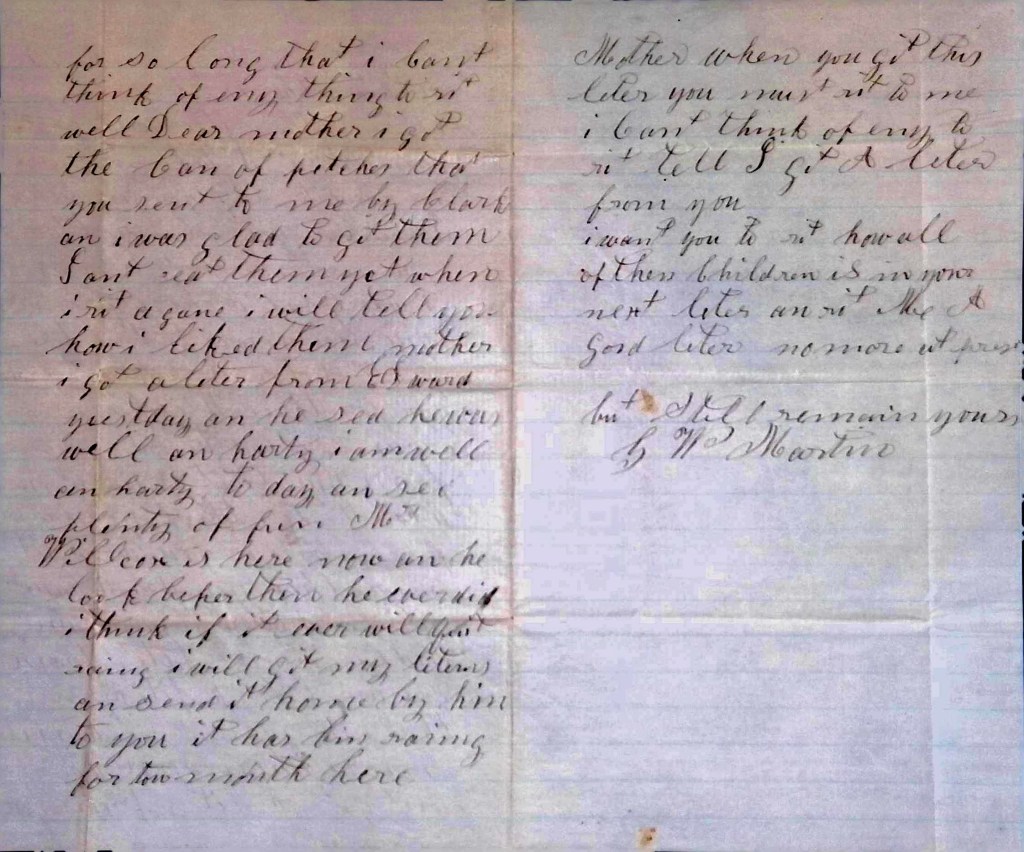 for so long that i cant
think of eny thing to rit
well Dear mother i got
the can of petches that
you sent to me by Clark
an i was glad to git them
I ant eat them yet when
i rit agane i will tell you
how i liked them mother
i got a leter from Edward
yuestday an he sed he was
well an harty i am well
an harty to day an see
plenty of fun Mr
Wilcox is here now an he
look beper then he ever did
i think if it ever will quit
raing i will git my
an send it home by him
to you it has bin raing
for tow month here
Mother when you git this
leter you must rit to me
i cant think of eny to
rit tell I git A leter
from you
i want you to rit how all
of then Children is in your
next leter an rit Me A
good leter no more at
but Still remain yours
G W Martin